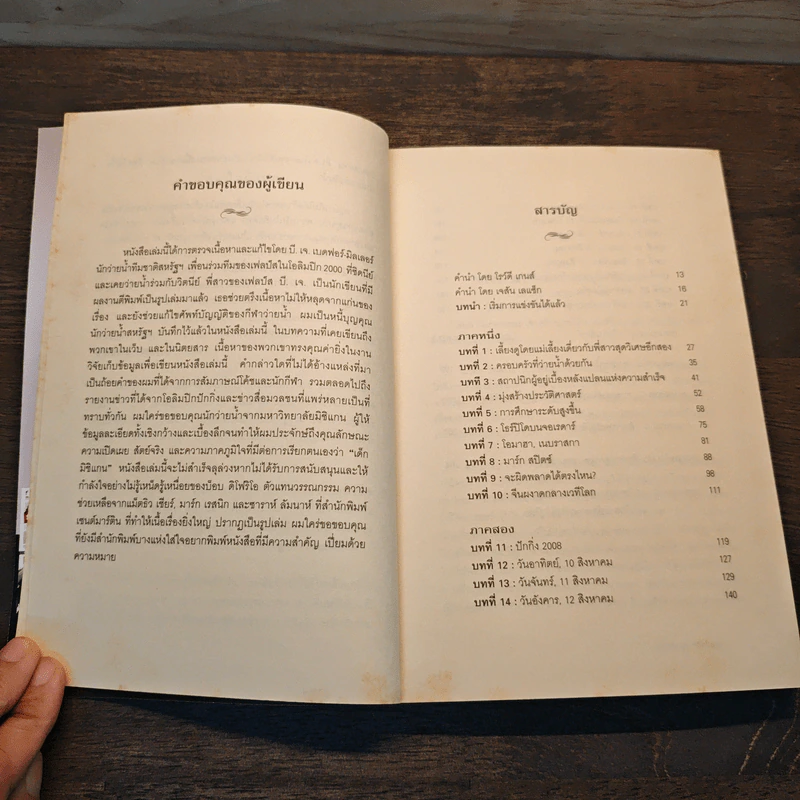 คำขอบคุณของผู้เขียน
หนังสือเล่มนี้ได้การตรวจเนื้อหาและแก้ไขโดย บี. เจ. เบดฟอร์-มิลเลอร์
นักว่ายน้ำทีมชาติสหรัฐฯ เพื่อนร่วมทีมของเฟลป์สในโอลิมปิก 2000 ที่ซิดนีย์
และเคยว่ายน้ำร่วมกับวิตนีย์ พี่สาวของเฟลป์ส บี. เจ. เป็นนักเขียนที่มี
ผลงานตีพิมพ์เป็นรูปเล่มมาแล้ว เธอช่วยตรึงเนื้อหาไม่ให้หลุดจากแก่นของ
เรื่อง และยังช่วยแก้ไขศัพท์บัญญัติของกีฬาว่ายน้ำ ผมเป็นหนี้บุญคุณ
นักว่ายน้ำสหรัฐฯ บันทึกไว้แล้วในหนังสือเล่มนี้ ในบทความที่เคยเขียนถึง
พวกเขาในเว็บ และในนิตยสาร เนื่องจากพวกเขาทรงคุณค่ายิ่งในงาน
วิจัยเก็บข้อมูลเพื่อเขียนหนังสือเล่มนี้ คำกล่าวใดที่ไม่ได้อ้างแหล่งที่มา
เป็นถ้อยคำของผมที่ได้จากการสัมภาษณ์โค้ชและนักกีฬา รวมตลอดไปถึง
รายงานข่าวที่ได้จากโอลิมปิกปักกิ่งและข่าวสื่อมวลชนที่แพร่หลายเป็นที่
ทราบทั่วกัน ผมใคร่ขอขอบคุณนักว่ายน้ำจากมหาวิทยาลัยมิชิแกน ผู้ให้
ข้อมูลละเอียดทั้งเชิงกว้างและเบื้องลึกจนทำให้ผมประจักษ์ถึงคุณลักษณะ
ความเปิดเผย สัตย์จริง และความภาคภูมิใจที่มีต่อการเรียกตนเองว่า “เด็ก
มิชิแกน” หนังสือเล่มนี้จะไม่สำเร็จลุล่วงหากไม่ได้รับการสนับสนุนและให้
กำลังใจอย่างไม่รู้เหน็ดรู้เหนื่อยของบ็อบ ดิโฟริโอ ตัวแทนวรรณกรรม ความ
ช่วยเหลือจากแม็ตธิว เชียร์, มาร์ก เรสนิก และซาราห์ ลัมนาห์ ที่สำนักพิมพ์
เซนต์มาร์ติน ที่ทำให้เนื้อเรื่องยิ่งใหญ่ ปรากฏเป็นรูปเล่ม ผมใคร่ขอขอบคุณ
ที่ยังมีสำนักพิมพ์บางแห่งใส่ใจอยากพิมพ์หนังสือที่มีความสำคัญ เปี่ยมด้วย
ความหมาย
สารบัญ
คำนำ โดย โรว์ดี เกนส์ 13
คำนำ โดย เจสัน เลแซ็ก 16
บทนำ : เริ่มการแข่งขันได้แล้ว 21
ภาคหนึ่ง
บทที่ 1 : เลี้ยงดูโดยแม่เลี้ยงเดี่ยวกับพี่สาวสุดวิเศษอีกสอง 27
บทที่ 2 : ครอบครัวที่ว่ายน้ำด้วยกัน 35
บทที่ 3 : สถาปนิกผู้อยู่เบื้องหลังแปลนแห่งความสำเร็จ 41
บทที่ 4 : มุ่งสร้างประวัติศาสตร์ 52
บทที่ 5 : การศึกษาระดับสูงขึ้น 58
บทที่ 6 : โธร์ปิโดบนจอเรดาร์ 75
บทที่ 7 : โอมาฮา, เนบราสกา 81
บทที่ 8 : มาร์ก สปิตซ์ 88
บทที่ 9 : จะผิดพลาดได้ตรงไหน? 98
บทที่ 10 : จีนผงาดกลางเวทีโลก 111
ภาคสอง
บทที่ 11 : ปักกิ่ง 2008 119
บทที่ 12 : วันอาทิตย์, 10 สิงหาคม 127
บทที่ 13 : วันจันทร์, 11 สิงหาคม 129
บทที่ 14 : วันอังคาร, 12 สิงหาคม 140